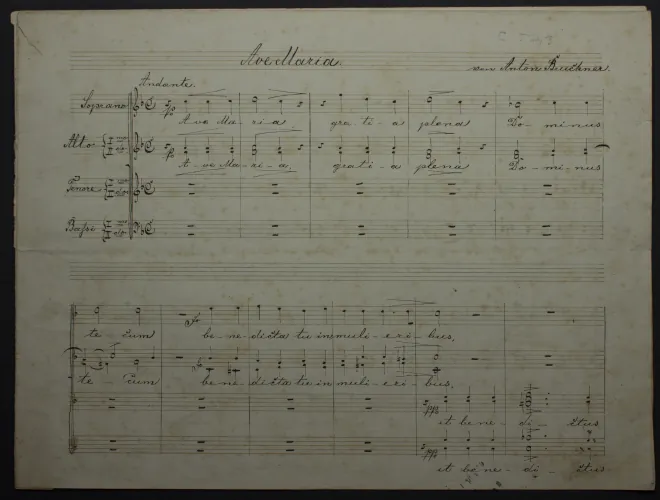 Ave Maria.
von Anton Bruckner.
Andante.
Soprano
A ve Ma - ri - a, gra - ti - a plena Do - minus
Alto
A - ve Ma - ri - a, grati - a plena Do - mi - nus
Tenore
Bassi
te - cum be - ne - dicta tu in muli - eri - bus,
te - cum bene - dicta tu in muli - eri - bus,
pp
et bene - di - ctus
pp
et bene - di - ctus